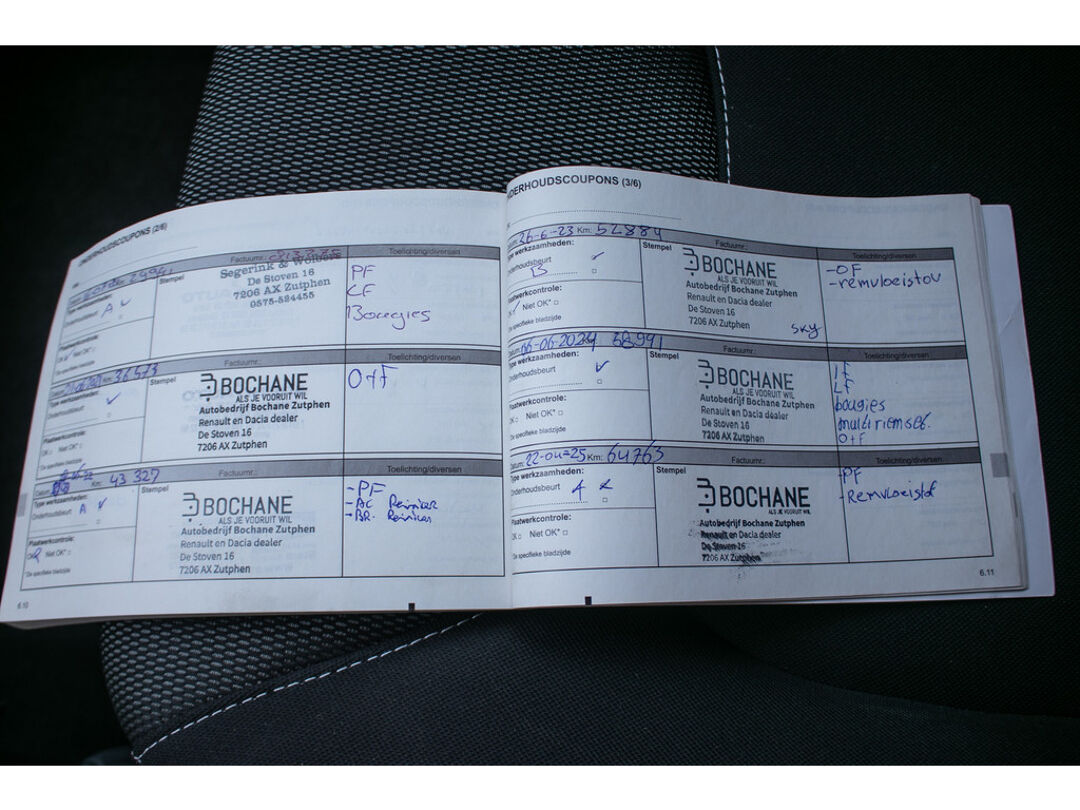 ONDERHOUDSCOUPONS (2/6)
Factuurnr.:
Toelichting/diversen
29941
Type werkzaamheden:
Onderhoudsbeurt
A
Stempel
Segerink & Wolbers
De Stoven 16
7206 AX Zutphen
0575-524455
PF
CF
Bougies
Plaatwerkcontrole:
OK Niet OK*
*De specifieke bladzijde
Factuurnr.:
Toelichting/diversen
Datum: Km: 36573
Type werkzaamheden:
Onderhoudsbeurt
Stempel
BOCHANE
ALS JE VOORUIT WIL
Autobedrijf Bochane Zutphen
Renault en Dacia dealer
De Stoven 16
7206 AX Zutphen
O+F
Plaatwerkcontrole:
OK Niet OK*
*De specifieke bladzijde
Factuurnr.:
Toelichting/diversen
Datum: Km: 43 327
Type werkzaamheden:
Onderhoudsbeurt
A
Stempel
BOCHANE
ALS JE VOORUIT WIL
Autobedrijf Bochane Zutphen
Renault en Dacia dealer
De Stoven 16
7206 AX Zutphen
-PF
-AC Reiniger
-BR. Reiniger
Plaatwerkcontrole:
OK Niet OK*
*De specifieke bladzijde
6.10
ONDERHOUDSCOUPONS (3/6)
Datum: 26-6-23 Km: 52884
Factuurnr.:
Toelichting/diversen
Type werkzaamheden:
Onderhoudsbeurt
B
Stempel
BOCHANE
ALS JE VOORUIT WIL
Autobedrijf Bochane Zutphen
Renault en Dacia dealer
De Stoven 16
7206 AX Zutphen
sky
-OF
-remvloeistov
Plaatwerkcontrole:
OK Niet OK*
*De specifieke bladzijde
Datum: 06-06-2024 58991
Factuurnr.:
Toelichting/diversen
Type werkzaamheden:
Onderhoudsbeurt
Stempel
BOCHANE
ALS JE VOORUIT WIL
Autobedrijf Bochane Zutphen
Renault en Dacia dealer
De Stoven 16
7206 AX Zutphen
IF
LF
bougies
multiriemset.
O+F
Plaatwerkcontrole:
OK Niet OK*
*De specifieke bladzijde
Datum: 22-04-25 Km: 64763
Factuurnr.:
Toelichting/diversen
Type werkzaamheden:
Onderhoudsbeurt
A
Stempel
BOCHANE
ALS JE VOORUIT WIL
Autobedrijf Bochane Zutphen
Renault en Dacia dealer
De Stoven 16
7206 AX Zutphen
-PF
-Remvloeistof
Plaatwerkcontrole:
OK Niet OK*
*De specifieke bladzijde
6.11